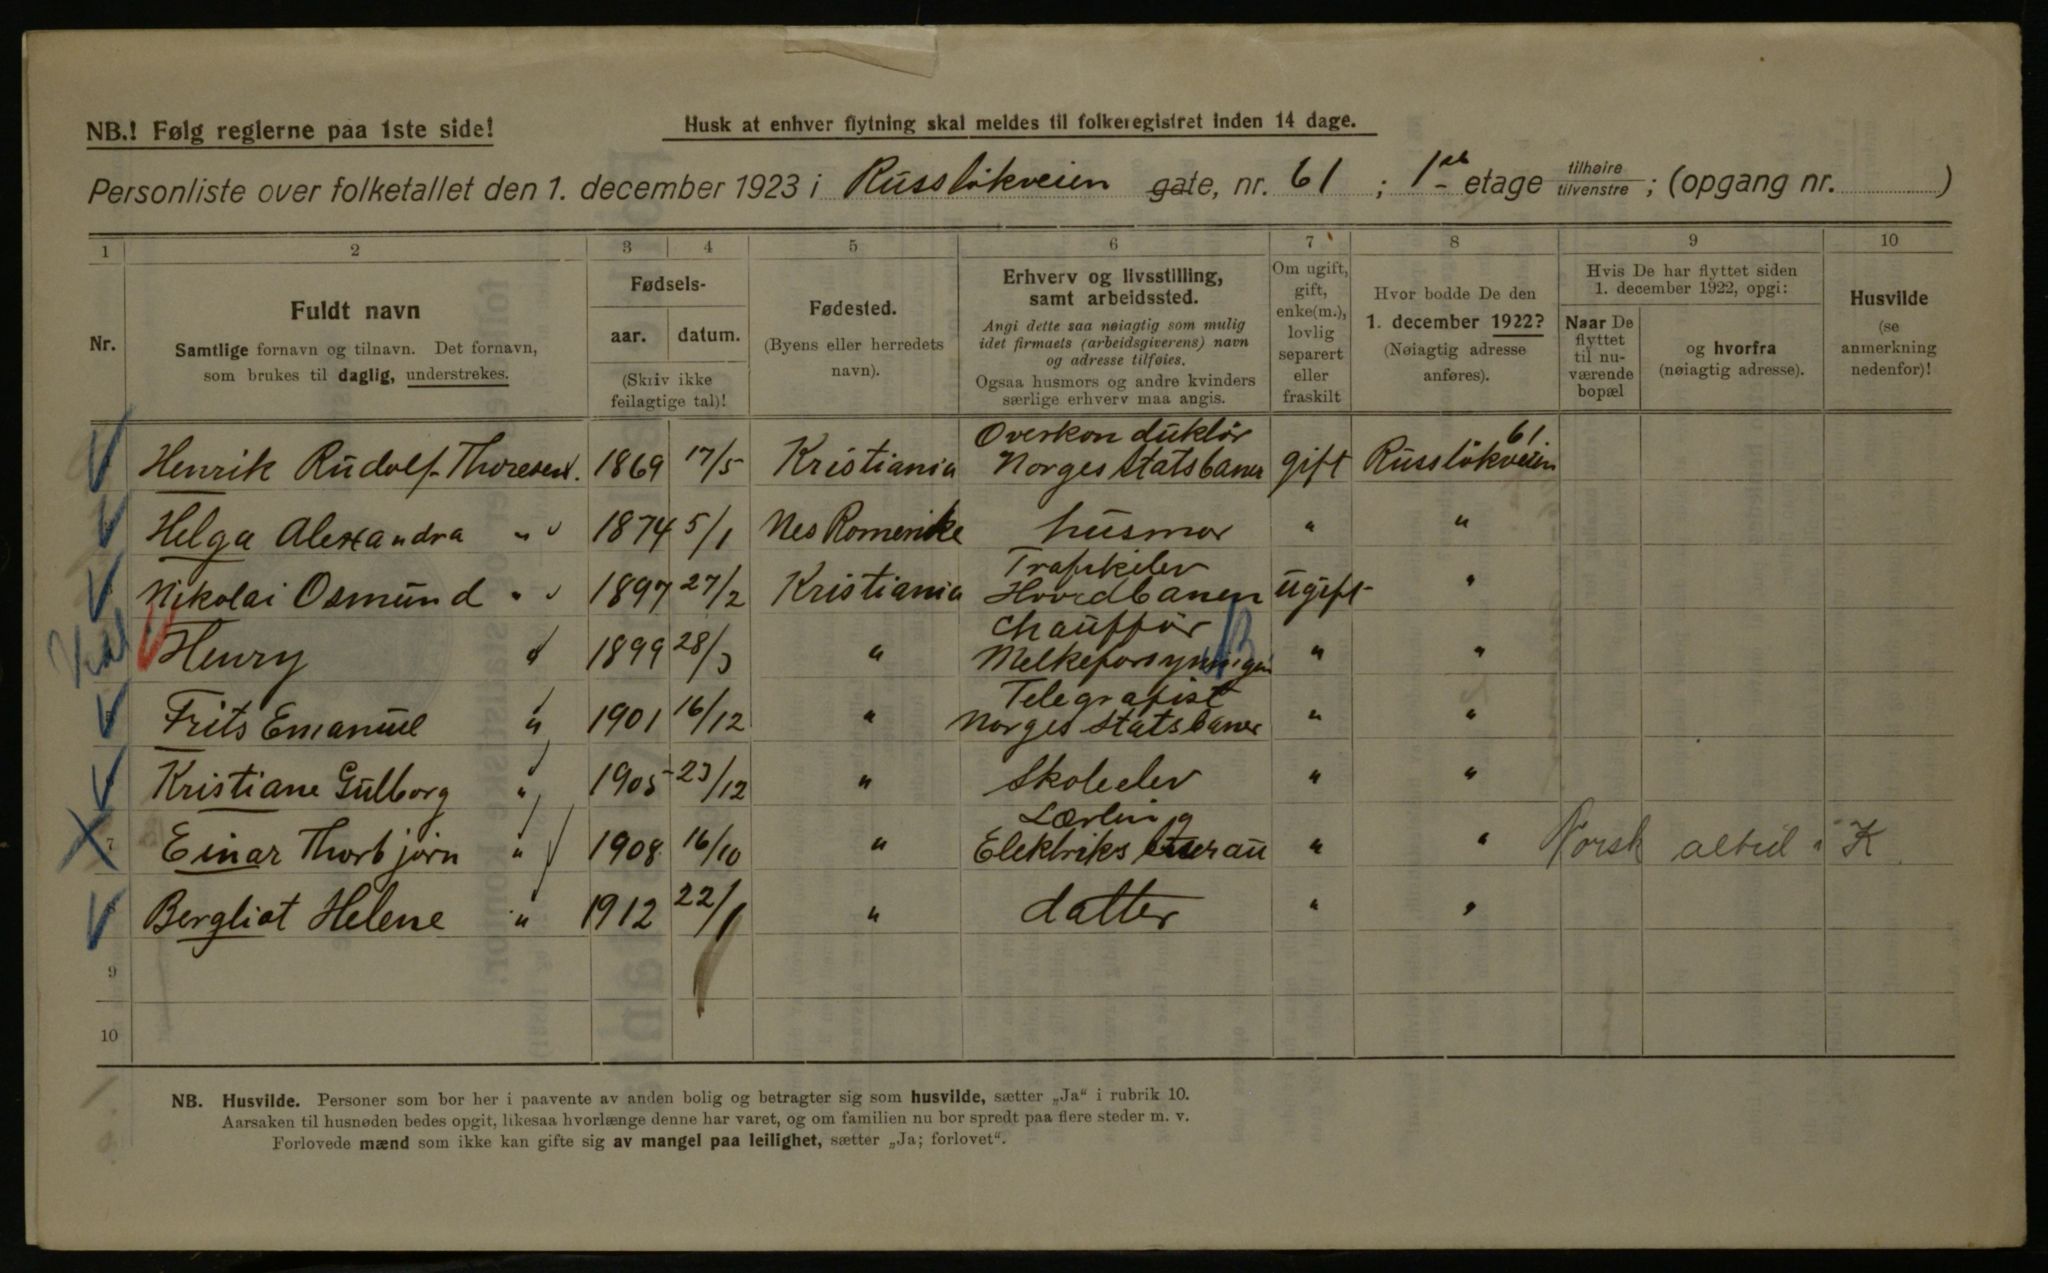 NB.! Følg reglerne paa 1ste side!
Husk at enhver flytning skal meldes til folkeregistret inden 14 dage.
Personliste over folketallet den 1. december 1923 i Russløkveien gate, nr. 61 ; 1ste etage tilhøire tilvenstre ; (opgang nr. )
1 2 3 4 5 6 7 8 9 10
Nr.
Fuldt navn
Samtlige fornavn og tilnavn. Det fornavn,
som brukes til daglig, understrekes.
Fødsels-
aar. datum.
(Skriv ikke
feilagtige tal)!
Fødested.
(Byens eller herredets
navn).
Erhverv og livsstilling,
samt arbeidssted.
Angi dette saa nøiagtig som mulig
idet firmaets (arbeidsgiverens) navn
og adresse tilføies.
Ogsaa husmors og andre kvinders
særlige erhverv maa angis.
Om ugift,
gift,
enke(m.),
lovlig
separert
eller
fraskilt
Hvor bodde De den
1. december 1922?
(Nøiagtig adresse
anføres).
Hvis De har flyttet siden
1. december 1922, opgi:
Naar De
flyttet
til nu-
værende
bopæl
og hvorfra
(nøiagtig adresse).
Husvilde
(se
anmerkning
nedenfor)!
Henrik Rudolf Thoresen. 1869 17/5 Kristiania Overkonduktör Norges Statsbaner gift Russlökveien 61
Helga Alexandra " 1874 5/1 Nes Romerike husmor " "
Nikolai Osmund " 1897 27/2 Kristiania Trafikelev Hovedbanen ugift "
Henry " 1899 28/3 " Chauffør Melkeforsyningen " "
Frits Emanuel " 1901 16/12 " Telegrafist Norges Statsbaner " "
Kristiane Gulborg " 1905 23/12 " Skoleelev " "
7 Einar Thorbjørn " 1908 16/10 " Lærling " " Norsk altid i K
Bergliot Helene " 1912 22/1 " datter " "
9
10
NB. Husvilde. Personer som bor her i paavente av anden bolig og betragter sig som husvilde, sætter „Ja“ i rubrik 10.
Aarsaken til husnøden bedes opgit, likesaa hvorlænge denne har varet, og om familien nu bor spredt paa flere steder m. v.
Forlovede mænd som ikke kan gifte sig av mangel paa leilighet, sætter „Ja; forlovet“.